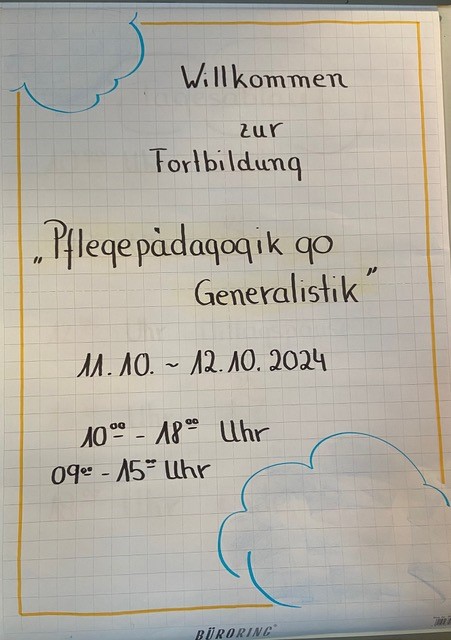 Willkommen
zur
Fortbildung
„Pflegepädagogik go
Generalistik”
11.10. ~ 12.10. 2024
10⁰⁰ - 18⁰⁰ Uhr
09⁰⁰ - 15⁰⁰ Uhr
BÜRORING